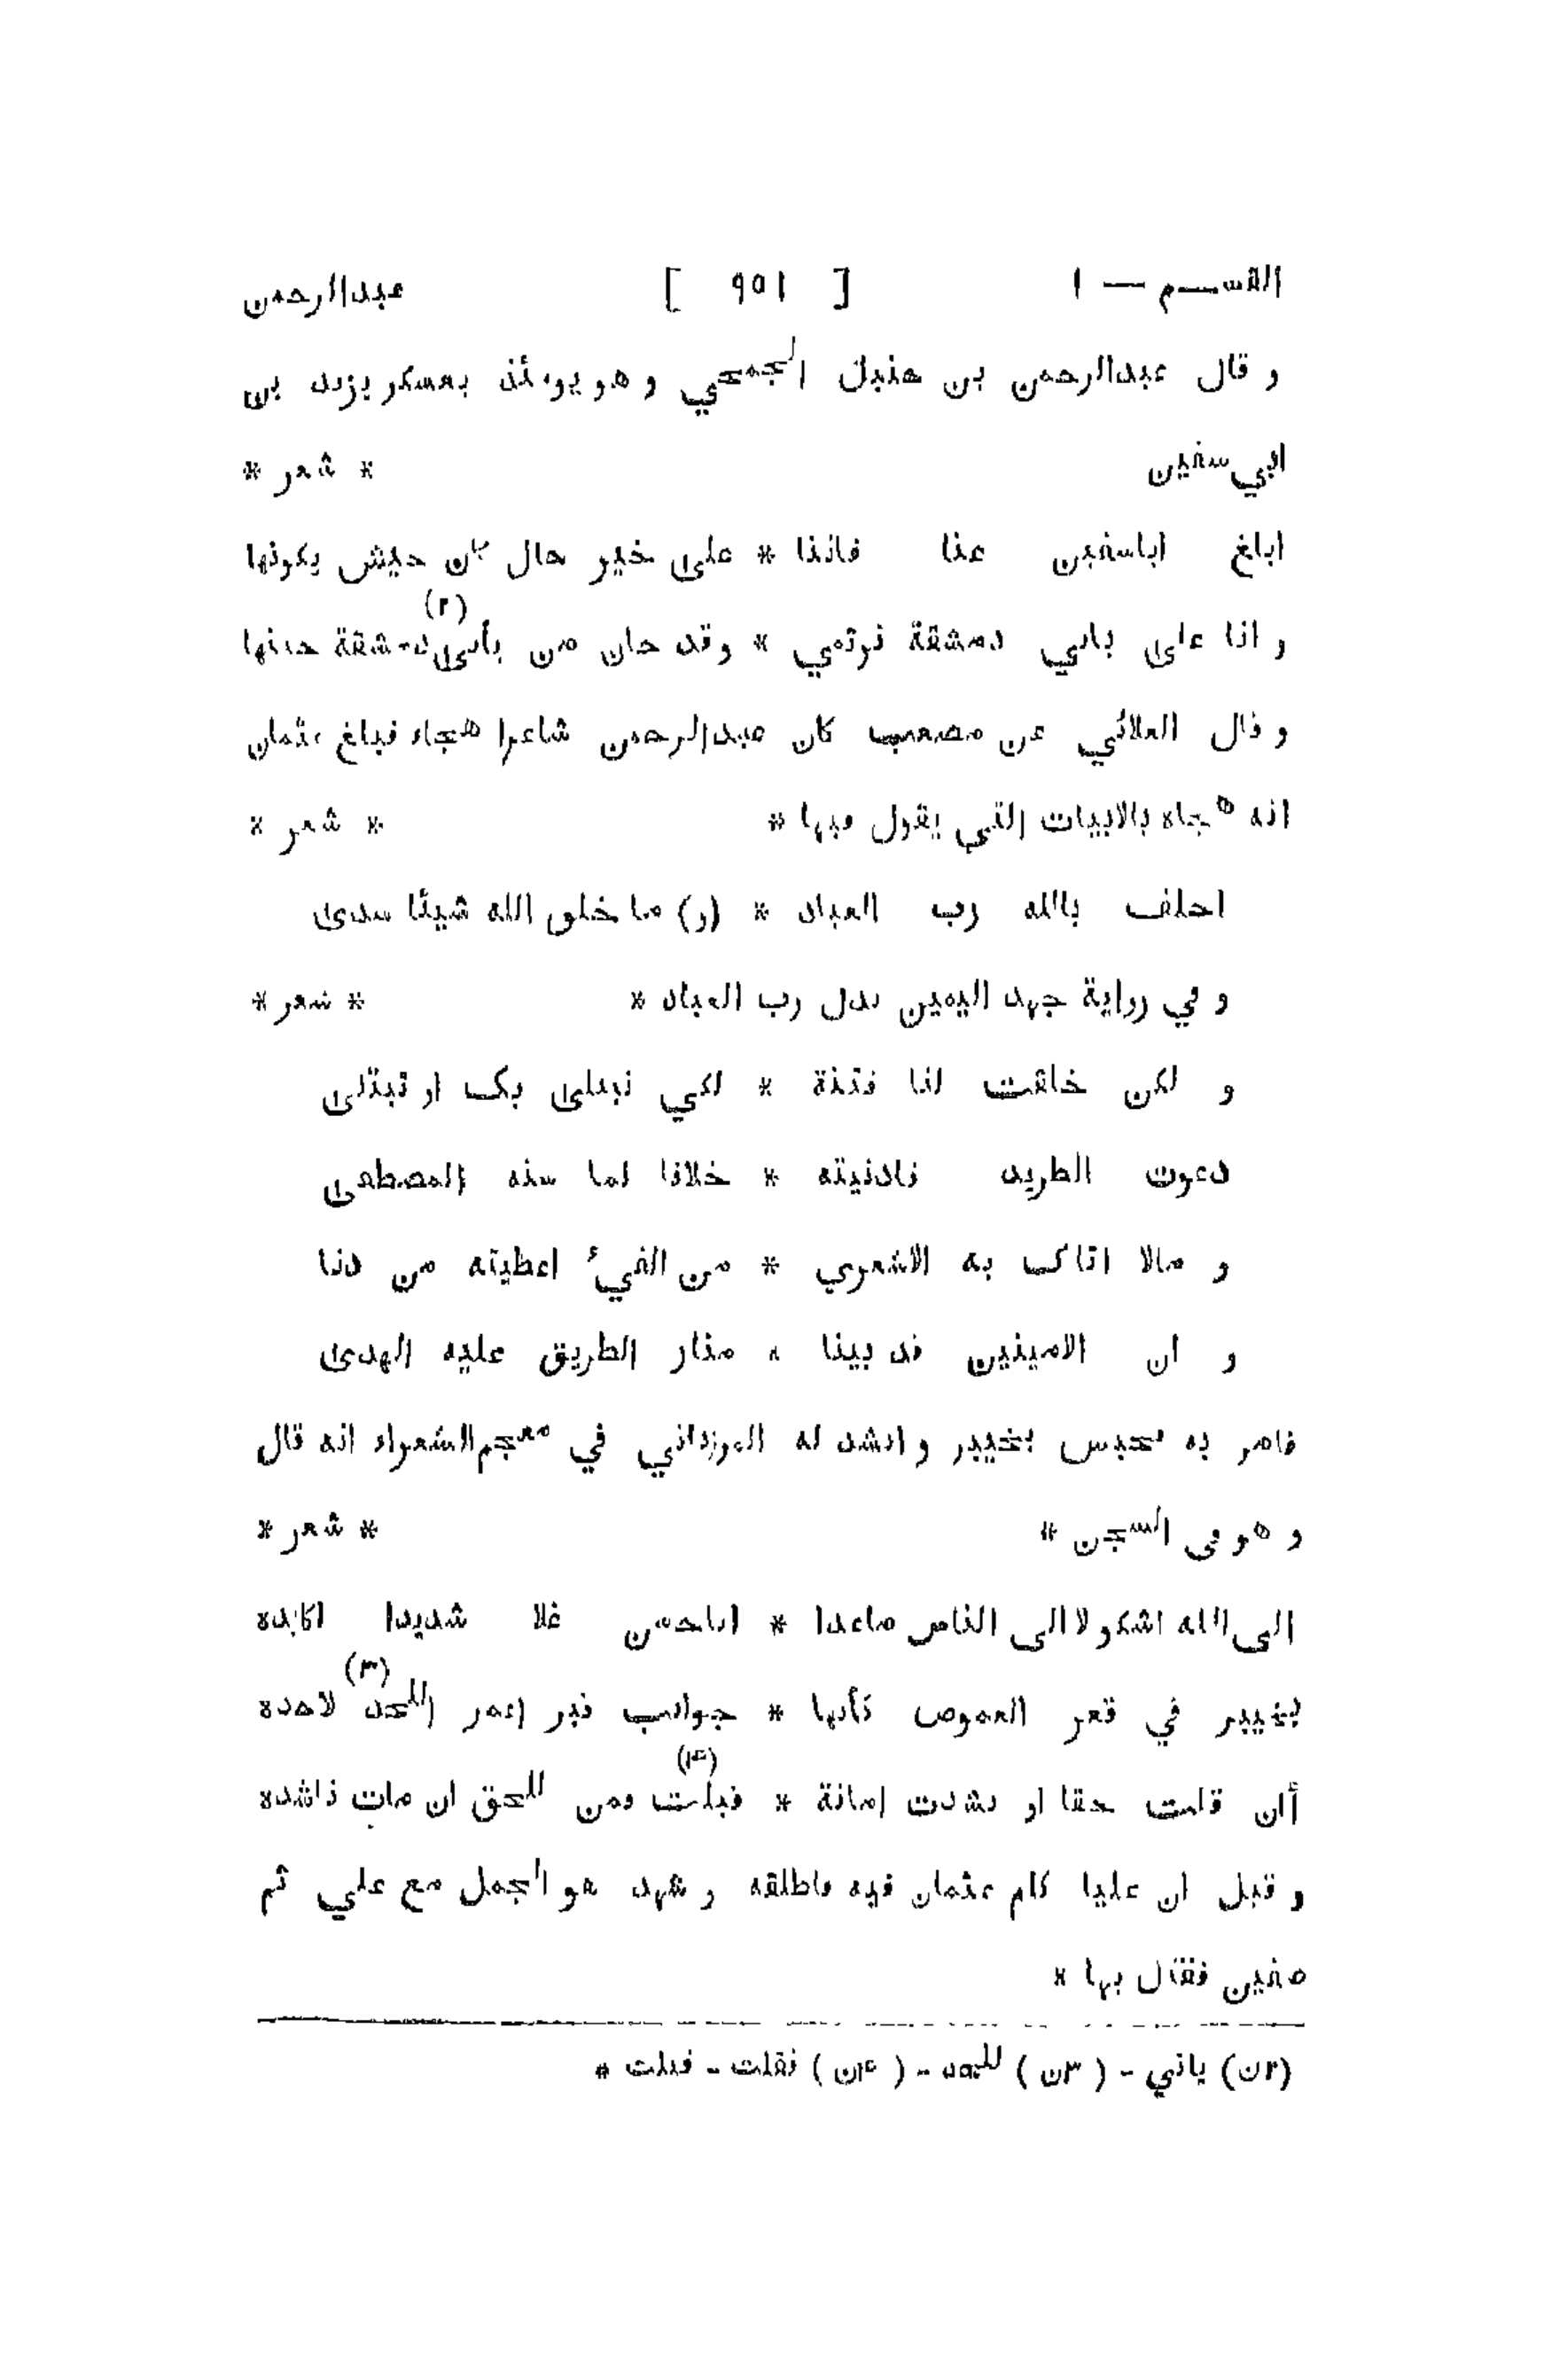 القسم — ١ [ ٩٥١ ] عبدالرحمن
و قال عبدالرحمن بن حنبل الجمحي و هو يومئذ بعسكر يزيد بن
ابي سفين * شعر *
ابلغ اباسفين عنا فاننا * على خير حال كان جيش يكونها
و انا على بابي دمشقة نرتمي * وقد حان من بأبى (٢) دمشقة حينها
و قال العلائي عن مصعب كان عبدالرحمن شاعرا هجاء فبلغ عثمان
انه هجاه بالابيات التي يقول فيها * * شعر *
احلف بالله رب العباد * (و) ما خلق الله شيئا سدى
و في رواية جهد اليمين بدل رب العباد * * شعر *
و لكن خلقت لنا فتنة * لكي نبتلى بك او تبتلى
دعوت الطريد فادنيته * خلافا لما سنه المصطفى
و مالا اتاك به الاشعري * من الفيء اعطيته من دنا
و ان الامينين قد بينا * منار الطريق عليه الهدى
فامر به فحبس بخيبر و انشد له المرزباني في معجم الشعراء انه قال
و هو في السجن * * شعر *
الى الله اشكو لا الى الناس ماعدا * اباحسن غلا شديدا اكابده
بخيبر في قعر الغموص كأنها * جوانب قبر اعمر اللحد (٣) لاحده
أان قلت حقا او نشدت امانة * قبلت (٤) فمن للحق ان مات ناشده
و قيل ان عليا كلم عثمان فيه فاطلقه و شهد هو الجمل مع علي ثم
صفين فقتل بها *
(٢ن) ياتي - ( ٣ن ) لليهود - ( ٤ن ) فقلت - قبلت *